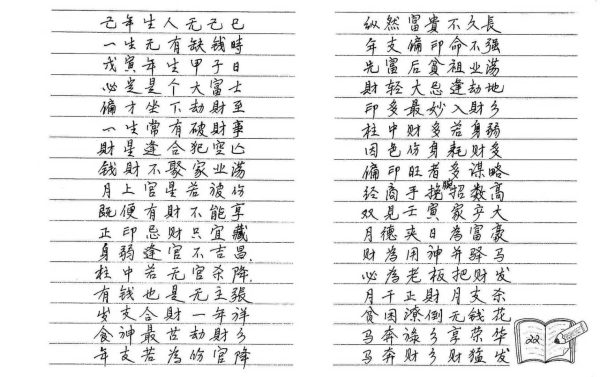 己年生人无己巳
一生无有缺钱時
戊寅年生甲子日
必定是个大富士
偏才坐下劫財至
一生常有破財事
財星逢合犯空亡
钱財不聚家业荡
月上官星若被伤
既便有財不能享
正印忌財只宜藏
身弱逢官不吉昌
柱中若无官杀降
有钱也是无主張
岁支合財一年祥
食神最苦劫財乡
年支若為伤官降
纵然富貴不久長
年支偏印命不强
先富后貧祖业荡
財轻大忌逢劫地
印多最妙入財乡
柱中財多若身弱
因色伤身耗财多
偏印旺者多谋略
经商手腕招数高
双见壬寅家产大
月德夹日為富豪
财為用神并驿马
必為老板把财发
月干正財月支杀
貧困潦倒无钱花
马奔禄乡享荣华
马奔财乡财猛发
22